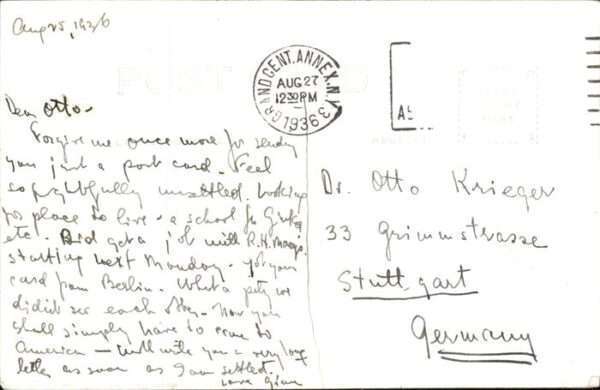 Aug 25, 1936
POST CARD
GRAND CENT. ANNEX. N.Y.
AUG 27
12 30 PM
1936
3
Dear Otto -
Forgive me once more for sending
you just a post card. Feel
so frightfully unsettled. Looking
for place to live - a school for
etc. Did get a job with R.H. Macys
starting next Monday. Got your
card from Berlin. What a pity we
didn't see each other. Now you
shall simply have to come to
America - will write you a very long
letter as soon as I am settled.
Love
Dr. Otto Krieger
33 Grimmstrasse
Stuttgart
Germany